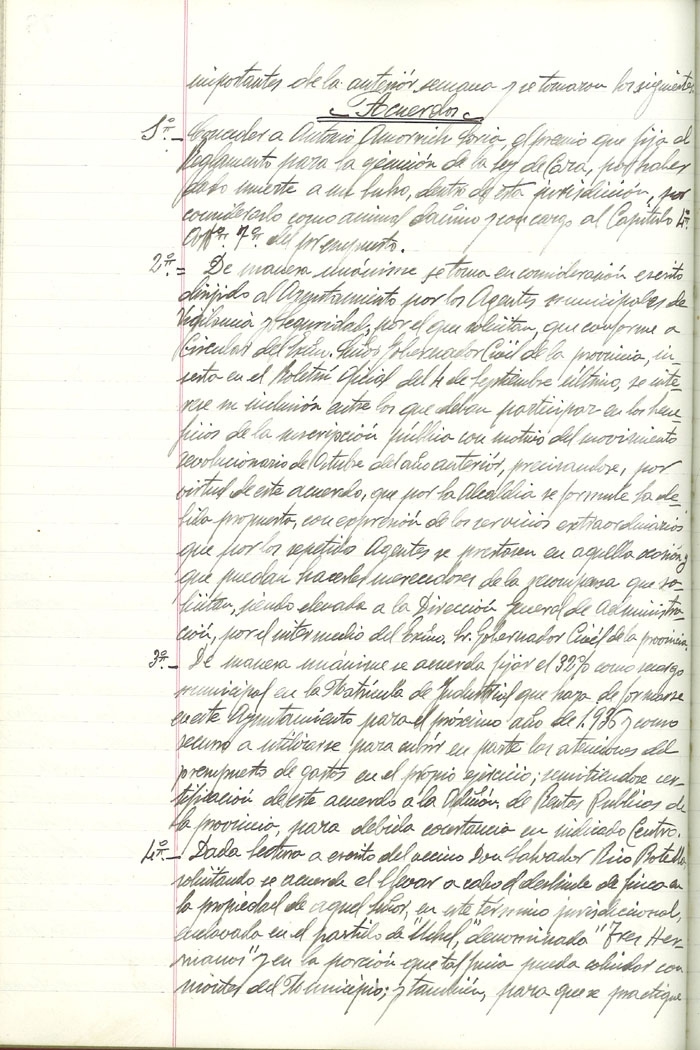 importantes de la anterior semana y se tomaron los siguientes
Acuerdos
1º.- Conceder a Antonio Amorrich Soria, el premio que fija el
Reglamento para la ejecución de la Ley de Caza, por haber
dado muerte a un buho, dentro de esta jurisdicción, por
considerarlo como animal dañino y con cargo al Capítulo 4º.
Artº. 7º. del presupuesto.
2º.= De manera unánime se toma en consideración escrito
dirigido al Ayuntamiento por los Agentes municipales de
Vigilancia y Seguridad, por el que solicitan, que conforme a
Circular del Excmo. Señor Gobernador Civil de la provincia, in-
serta en el Boletín Oficial del 4 de Septiembre último, se inte-
rese su inclusión entre los que deban participar en los bene-
ficios de la suscripción pública con motivo del movimiento
revolucionario de Octubre del año anterior, precisandose, por
virtud de este acuerdo, que por la Alcaldia se formule la de-
bida propuesta, con expresión de los servicios extraordinarios
que por los repetidos Agentes se prestasen en aquella ocasión y
que puedan hacerles merecedores de la recompensa que so-
licitan, siendo elevada a la Dirección General de Administra-
ción, por el intermedio del Excmo. Sr. Gobernador Civil de la provincia.
3º.- De manera unánime se acuerda fijar el 32% como recargo
municipal en la Matrícula de Industrial que haya de formarse
en este Ayuntamiento para el próximo año de 1.936 y como
recurso a utilizarse para cubrir en parte las atenciones del
presupuesto de gastos en el propio ejercicio; remitiendose cer-
tificación de este acuerdo a la Admón. de Rentas Publicas de
la provincia, para debida constancia en indicado Centro.
4º.- Dada lectura a escrito del vecino Don Salvador Rico Botella
solicitando se acuerde el llevar a cabo el deslinde de finca en
la propiedad de aquel Señor, en este término jurisdiccional,
enclavada en el partido de "Uchel," denominada "Tres Her-
manos" y en la porción que tal finca pueda colindar con
montes del Municipio; y también, para que se practique